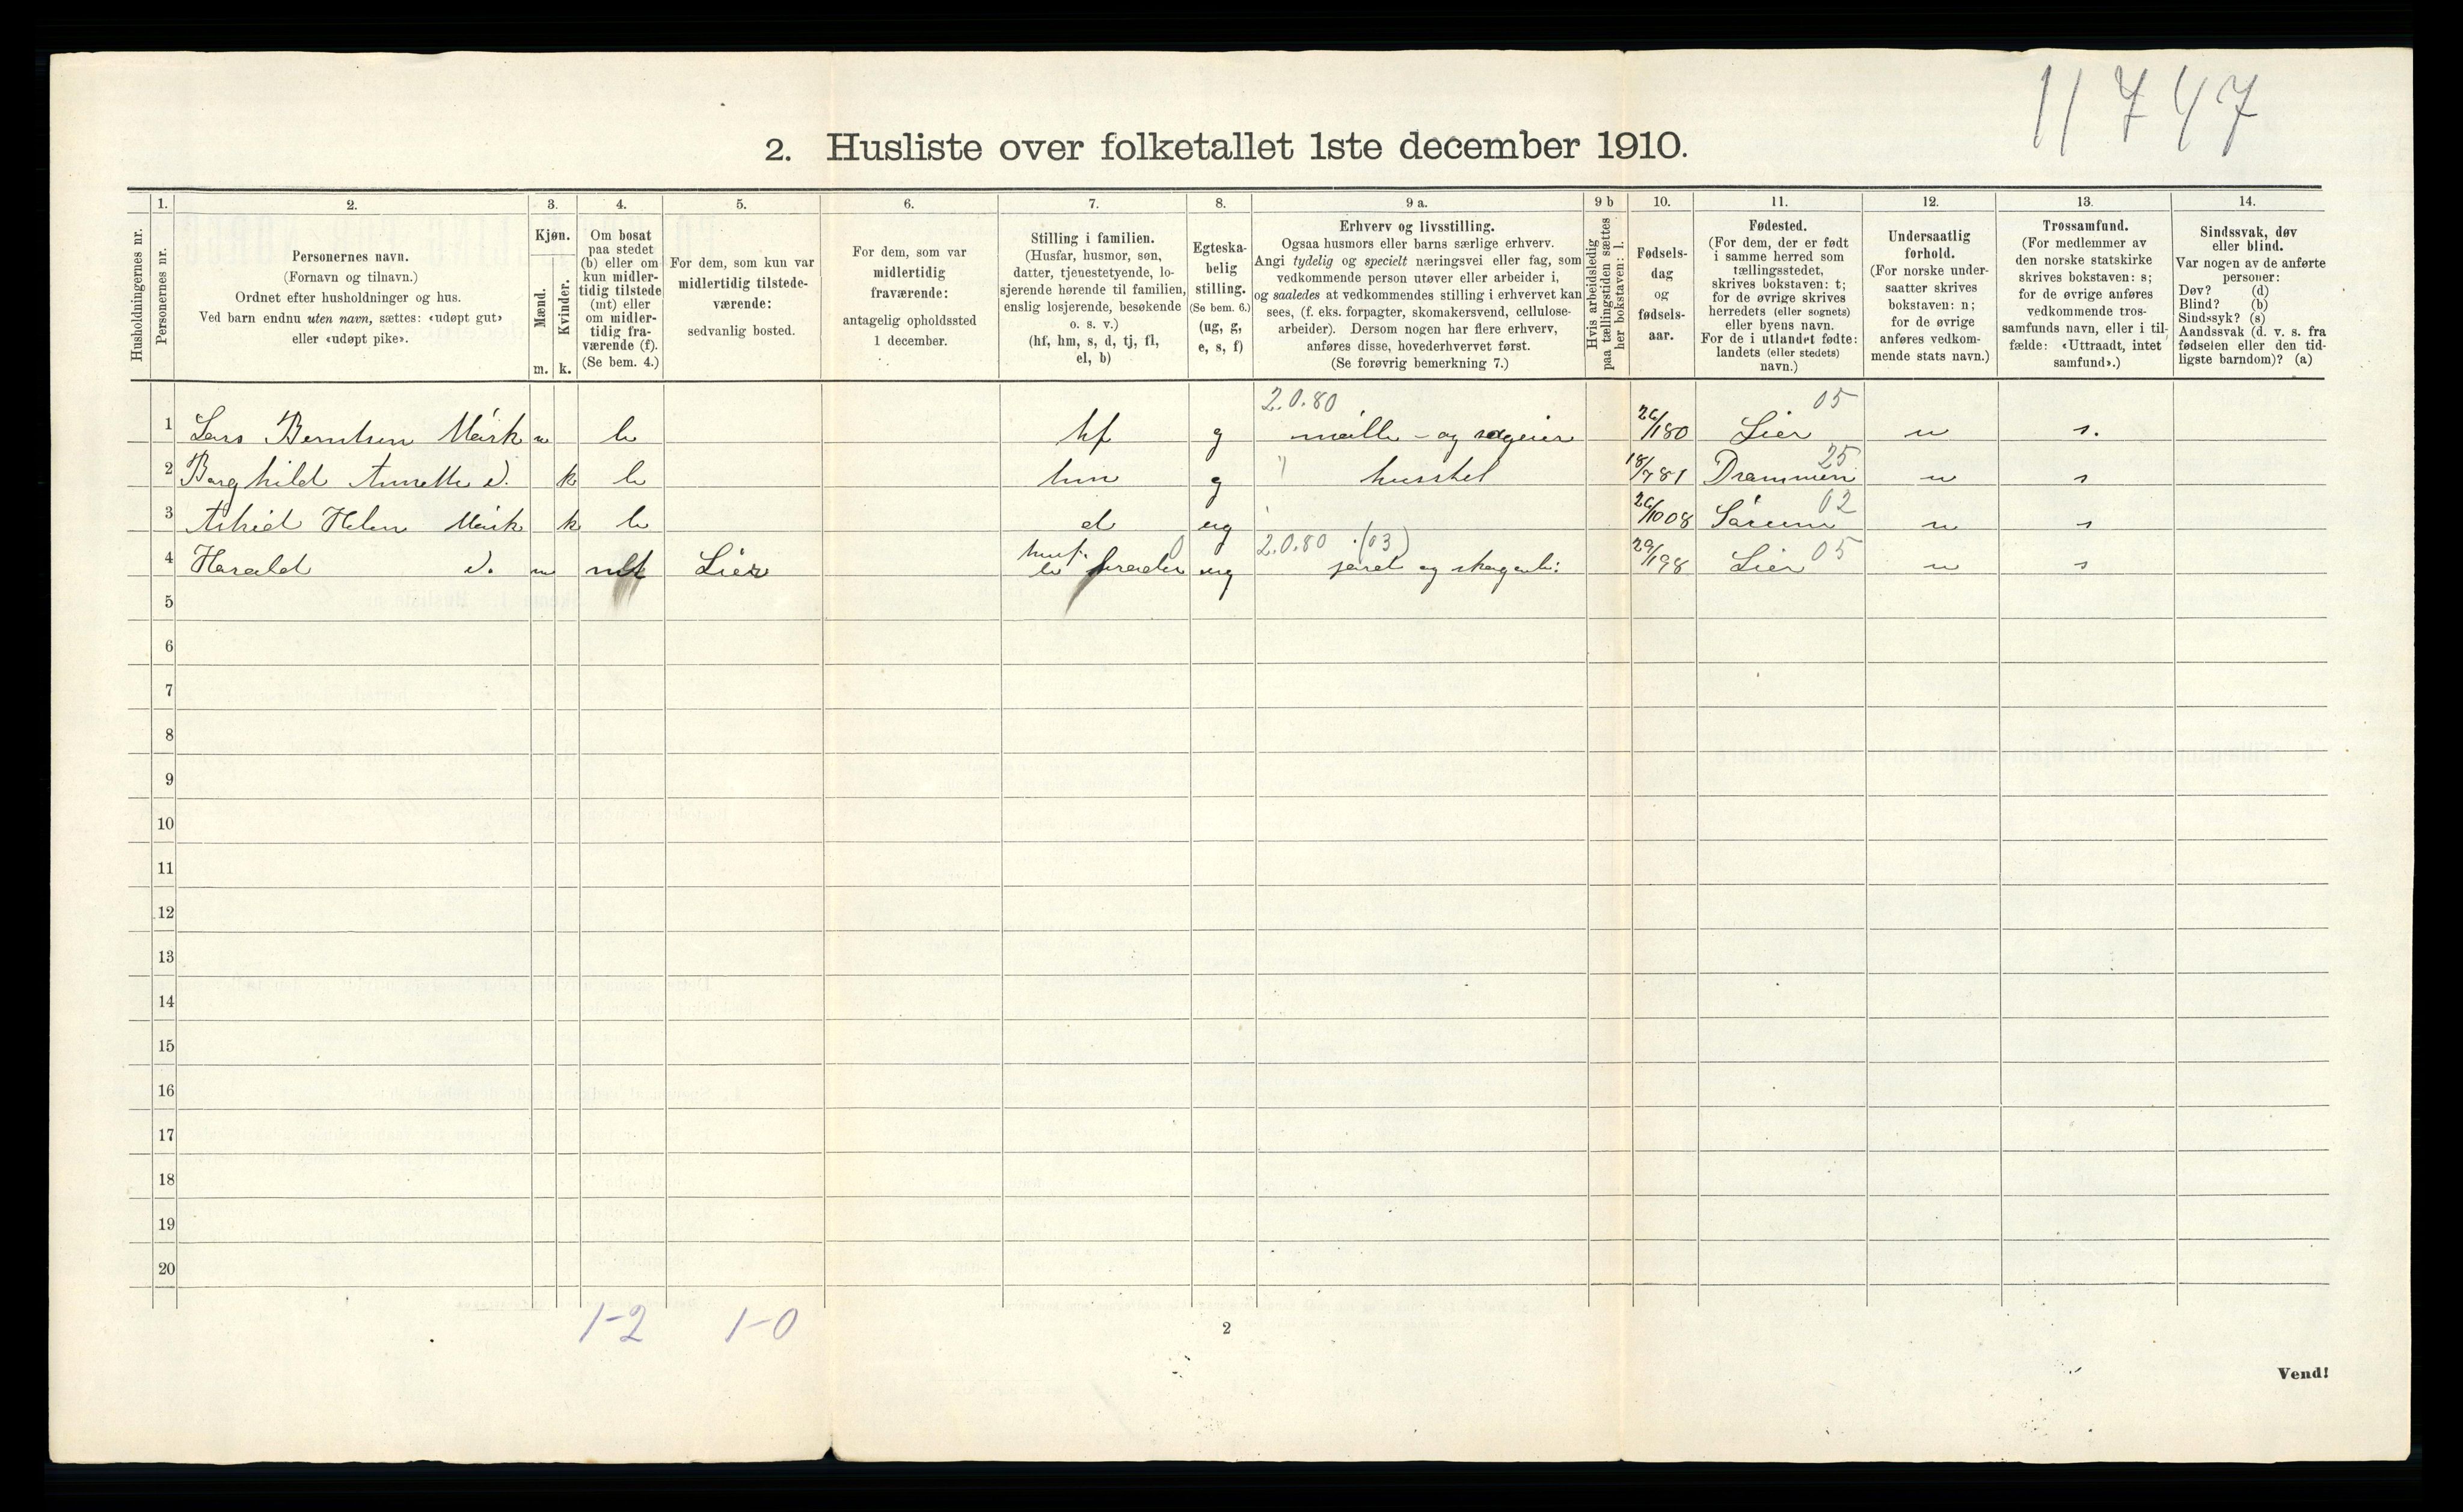 11747
2. Husliste over folketallet 1ste december 1910.
Husholdningernes nr.
1.
Personernes nr.
2.
Personernes navn.
(Fornavn og tilnavn.)
Ordnet efter husholdninger og hus.
Ved barn endnu uten navn, sættes: «udøpt gut»
eller «udøpt pike».
3.
Kjøn.
Mænd.
Kvinder.
m. k.
4.
Om bosat
paa stedet
(b) eller om
kun midler-
tidig tilstede
(mt) eller
om midler-
tidig fra-
værende (f).
(Se bem. 4.)
5.
For dem, som kun var
midlertidig tilstede-
værende:
sedvanlig bosted.
6.
For dem, som var
midlertidig
fraværende:
antagelig opholdssted
1 december.
7.
Stilling i familien.
(Husfar, husmor, søn,
datter, tjenestetyende, lo-
sjerende hørende til familien,
enslig losjerende, besøkende
o. s. v.)
(hf, hm, s, d, tj, fl,
el, b)
8.
Egteska-
belig
stilling.
(Se bem. 6.)
(ug, g,
e, s, f)
9 a.
Erhverv og livsstilling.
Ogsaa husmors eller barns særlige erhverv.
Angi tydelig og specielt næringsvei eller fag, som
vedkommende person utøver eller arbeider i,
og saaledes at vedkommendes stilling i erhvervet kan
sees, (f. eks. forpagter, skomakersvend, cellulose-
arbeider). Dersom nogen har flere erhverv,
anføres disse, hovederhvervet først.
(Se forøvrig bemerkning 7.)
9 b
Hvis arbeidsledig
paa tællingstiden sættes
her bokstaven: l.
10.
Fødsels-
dag
og
fødsels-
aar.
11.
Fødested.
(For dem, der er født
i samme herred som
tællingsstedet,
skrives bokstaven: t;
for de øvrige skrives
herredets (eller sognets)
eller byens navn.
For de i utlandet fødte:
landets (eller stedets)
navn.)
12.
Undersaatlig
forhold.
(For norske under-
saatter skrives
bokstaven: n;
for de øvrige
anføres vedkom-
mende stats navn.)
13.
Trossamfund.
(For medlemmer av
den norske statskirke
skrives bokstaven: s;
for de øvrige anføres
vedkommende tros-
samfunds navn, eller i til-
fælde: «Uttraadt, intet
samfund».)
14.
Sindssvak, døv
eller blind.
Var nogen av de anførte
personer:
Døv? (d)
Blind? (b)
Sindssyk? (s)
Aandssvak (d. v. s. fra
fødselen eller den tid-
ligste barndom)? (a)
2.0.80 05
1 Lars Berntsen Mørk m b hf g mølle- og sageier 26/1 80 Lier n s.
25
2 Borghild Annette d. k b hm g husstel 18/7 81 Drammen n s
02
3 Astrid Helen Mørk k b d ug 26/10 08 Sørum n s
2.0.80 (03) 05
4 Harald d. m mt Lier husf. broder ug jord og skogarb: 29/1 98 Lier n s
5
6
7
8
9
10
11
12
13
14
15
16
17
18
19
20
1-2 1-0
2
Vend!